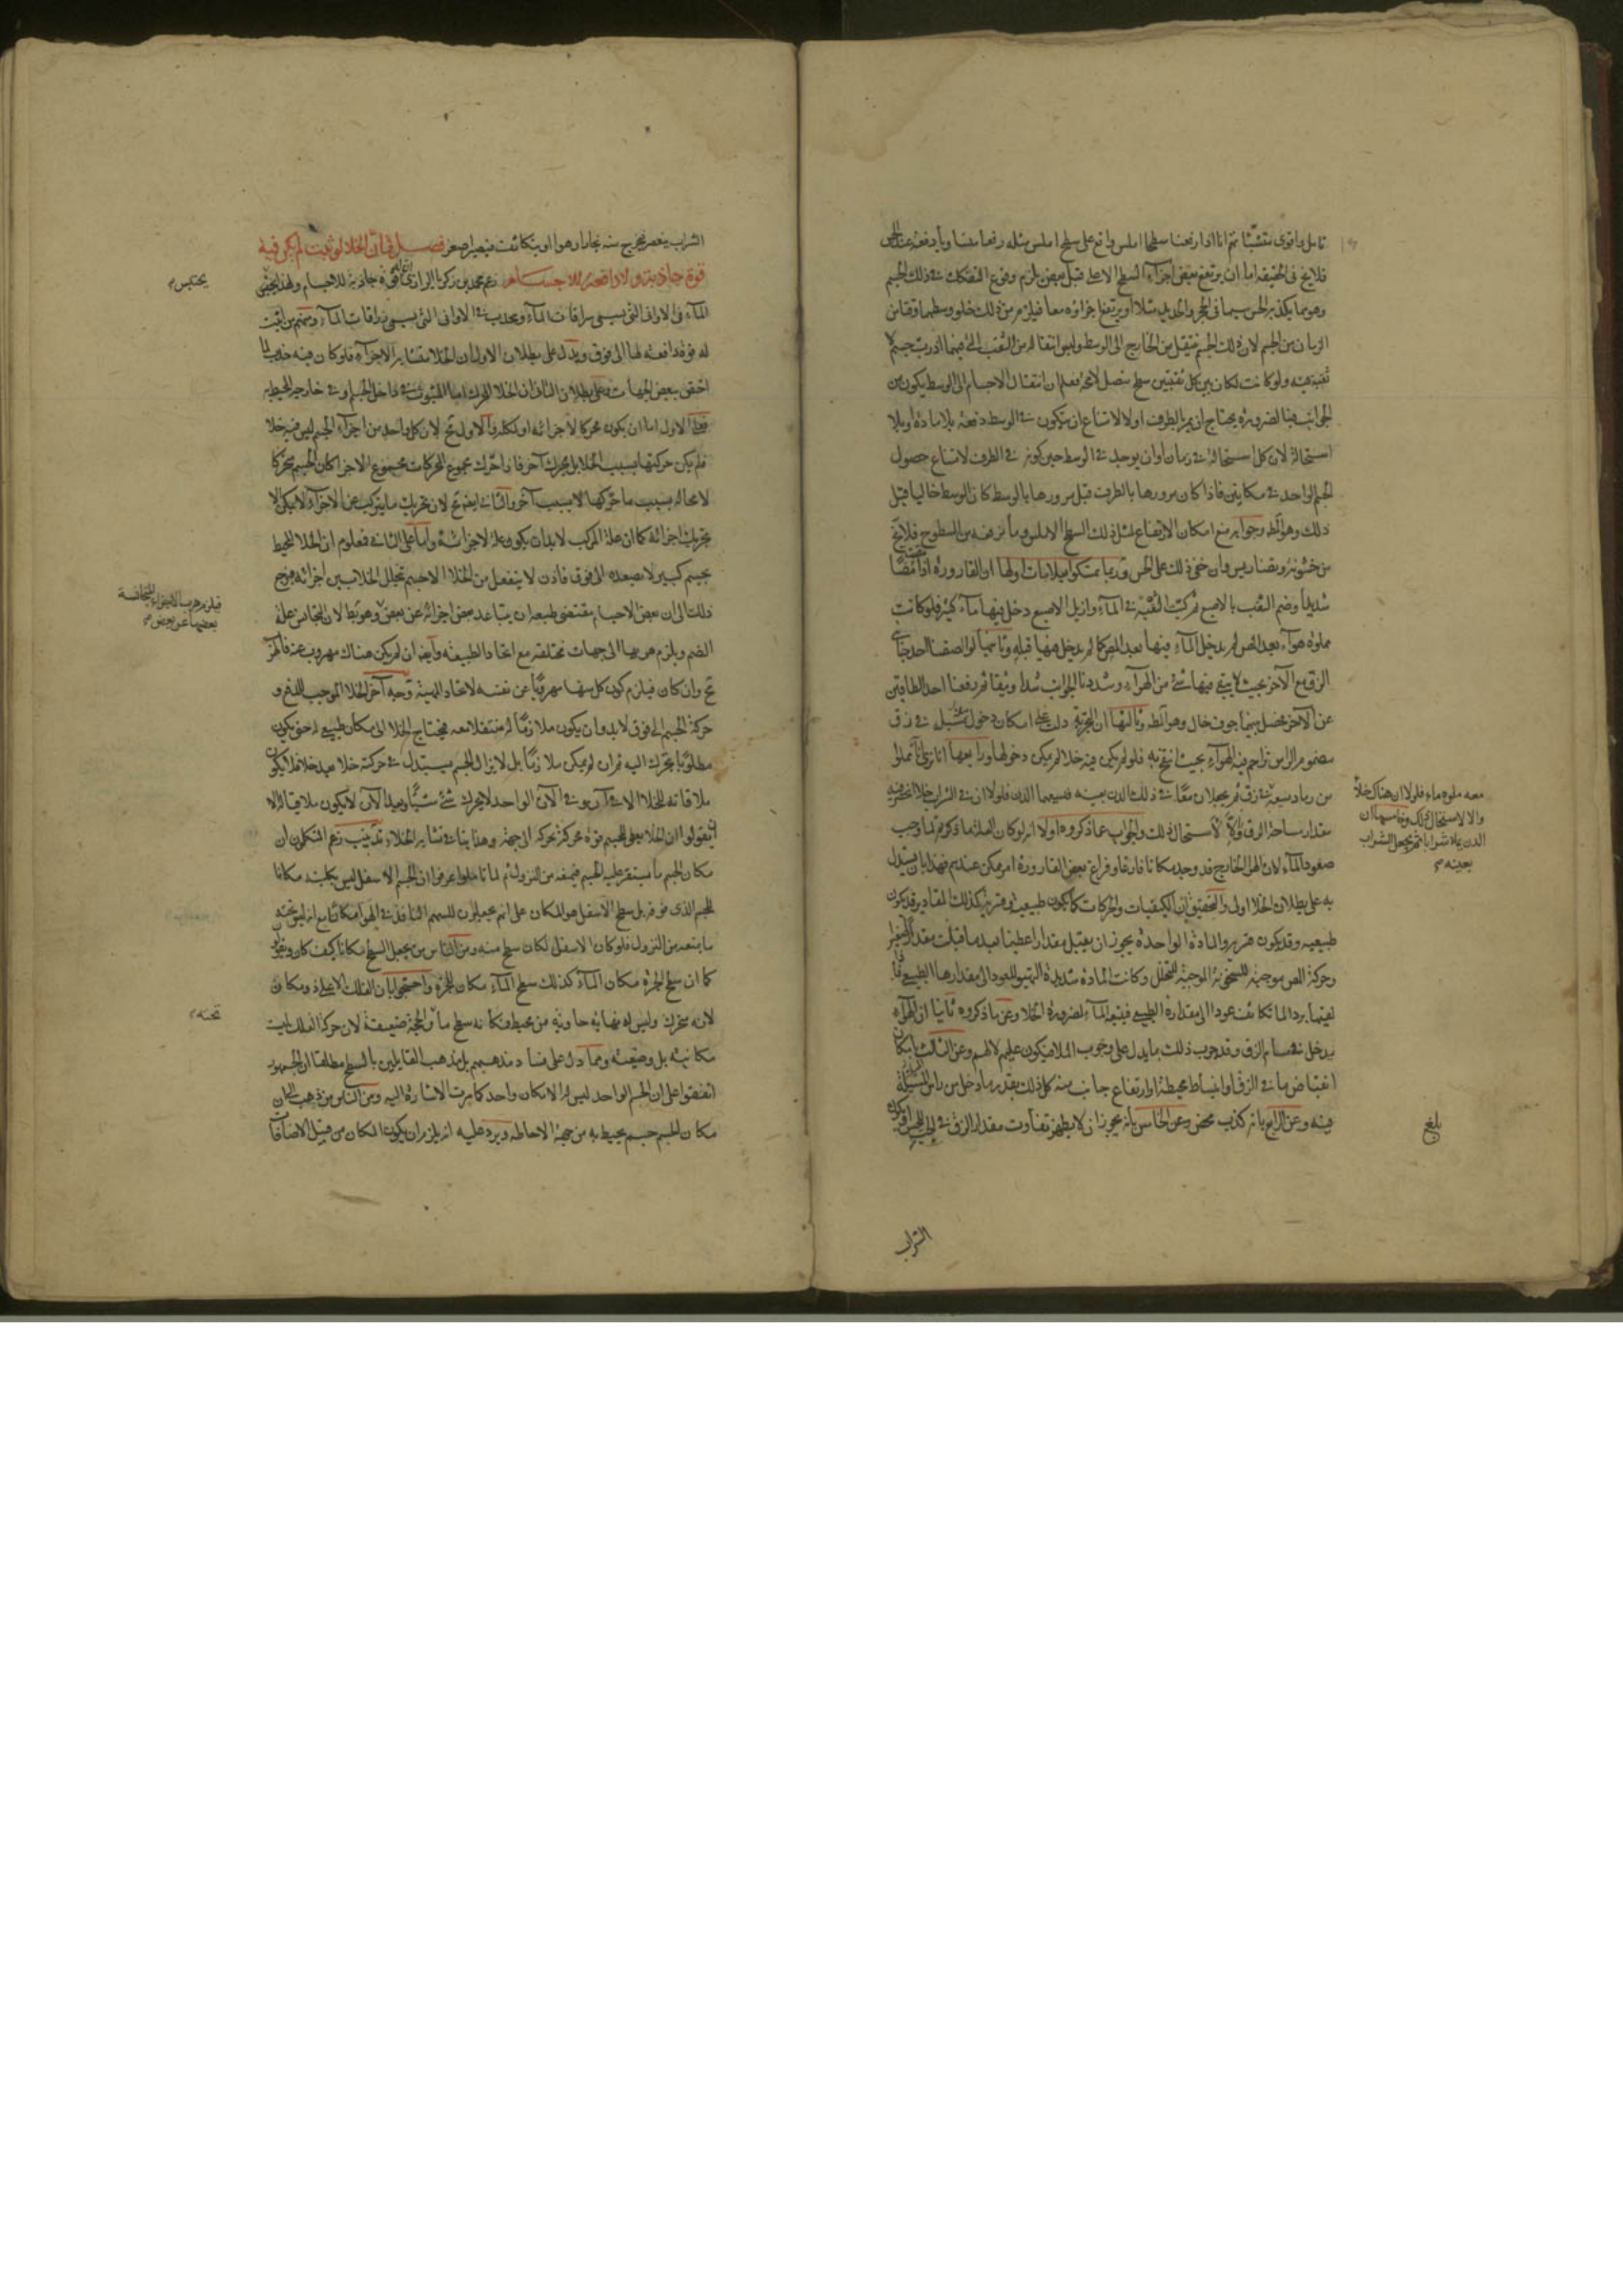 تامل واقوى تشبثا ثم انا اذا رفعنا سطحا املس واقع على سطح املس مثله رفعا متساويا دفعة عند الحس
فلا يخ فى الحقيقة اما ان يرتفع بعض اجزاء السطح الاعلى قبل بعض يلزم وقوع التفكك فى ذلك الجسم
وهو مما يكذبه الحس سيما فى الحجر والحديد مثلا او يرتفع اجزاؤه معا فيلزم من ذلك خلو وسطهما وقتا من
الزمان من الجسم لان ذلك الجسم ينتقل من الخارج الى الوسط وليس انتقاله من الثقب التى فيهما اذ رب جسم لا
ثقبة فيه ولو كانت لكان بين كل ثقبتين سطح متصل لا محة فعلم ان انتقال الاجسام الى الوسط يكون من
الجوانب فبالضرورة يحتاج ان يمر بالطرف اولا لامتناع ان يتكون فى الوسط دفعة بلا مادة او بلا
استحالة لان كل استحالة فى زمان او ان يوجد فى الوسط حين كونه فى الطرف لامتناع حصول
الجسم الواحد فى مكانين فاذا كان مرورها بالطرف قبل مرورها بالوسط كان الوسط خاليا قبل
ذلك وهو المط وجوابه منع امكان الارتفاع لمثل ذلك السطح الاملس وما نرفعه من السطوح فلا يخ
من خشونة وتضاريس وان خفى ذلك على الحس وربما تمسكوا بعلامات اولها ان القارورة اذا مصت مصا
شديدا وضم الثقب بالاصبع ثم كبت الثقبة فى الماء وازيل الاصبع دخل فيها ماء كثير فلو كانت
مملوة هواء بعد المص لم يدخل الماء فيها بعد المص كما لم يدخل فيها قبله وثانيها لو الصقنا احد جانبى
الزق مع الآخر بحيث لا يبقى فيها شئ من الهواء وشددنا الجوانب شدا وثيقا ثم رفعنا احد الطاقين
عن الآخر حصل بينهما جوف خال وهو المط وثالثها ان التجربة دلت على امكان دخول مسلة فى زق
مضموم الراس تراحم فيه الهواء بحيث انتفخ به فلو لم يكن فيه خلا لم يكن دخولها ورابعها انا نرى اناء مملوا
من رماد يسع
مقدار مساحة الزق والا لاستحال ذلك والجواب عما ذكروه اولا انه لو كان العلة ما ذكرتم لما وجب
صعود الماء لان الهوا الخارج قد وجد مكانا فارقا وفراغ بعض القارورة امر ممكن عندهم فهذا بان يستدل
به على بطلان الخلا اولى والتحقيق ان الكيفيات والحركات كما يكون طبيعية وقسرية كذلك المقادير قد يكون
طبيعيه وقد يكون قسريه والمادة الواحدة يجوز ان يقبل مقدارا عظيما بعد ما قبلت مقدارا صغيرا
وحركة المص موجبة للسخونة الموجبة للتخلل وكانت المادة شديدة التهيؤ للعود الى مقدارها الطبيعى فاذا
لقيها برد الماء تكاثفت عودا الى مقداره الطبيعى فيتبعه الماء لضرورة الخلا وعن ما ذكروه ثانيا ان الهواء
يدخل فى مسام الزق وقد جرب ذلك بما يدل على وجوب الملا فيكون عليهم لا لهم وعن الثالث بامكان
انقباض ما فى الزق او انبساط محيطه او ارتفاع جانب منه كل ذلك بقدر ما دخل من راس المسلة
فيه وعن الرابع بانه كذب محض وعن الخامس بانه يجوز ان لا يظهر تفاوت مقدار الزق فى الحس او يكون
معه ملوه ماء فلولا ان هناك خلاء
والا لاستحال ذلك وخامسها ان
الدن يملا شرابا ثم يجعل الشراب
بعينه
بلغ
الشراب
الشراب ينعصر فيخرج منه بخارا وهوا او يتكاثف فيصير اصغر فصل فى ان الخلا لو ثبت لم يكن فيه
قوة جاذبة ولا دافعة للاجسام زعم محمد بن زكريا الرازى ان له قوة جاذبة للاجسام ولهذا يحتبس
الماء فى الاوانى التى تسمى سراقات الماء ويجذب فى الاوانى التى تسمى زراقات الماء ومنهم من اثبت
له قوة دافعة لها الى فوق ويدل على بطلان الاول ان الخلا متشابه الاجزاء فلو كان فيه جذب لما
اختص ببعض الجهات وعلى بطلان الثانى ان الخلا المحرك اما المبثوث فى داخل الجسم او فى خارجه المحيط به
فعلى الاول اما ان يكون محركا لاجزائه او لكله والاول مح لان كل واحد من اجزاء الجسم ليس فيه خلا
فلم يكن حركتها بسبب الخلا بل بمحرك آخر فاذا حرك مجموع المحركات مجموع الاجزا كان الجسم محركا
لا محالة بسبب ما حركها لا بسبب آخر والثانى ايضا مح لان تحريك ما يتركب عن الاجزاء لا يمكن الا
بتحريك اجزائه كما ان علة المركب لا بد ان يكون علة لاجزائه واما على الثانى فمعلوم ان الخلا المحيط
بجسم كبير لا يصعده الى فوق فاذن لا ينفعل من الخلا الا جسم تخلل الخلا بين اجزائه فيرجع
ذلك الى ان بعض الاجسام مقتضى طبيعه ان يتباعد بعض اجزائه عن بعض وهو بط لان التجانس علة
الضم ويلزم هربها الى جهات مختلفة مع اتحاد الطبيعة وايضا ان لم يكن هناك مهروب عنه فالهرب
مح وان كان فيلزم كون كل منها مهروبا عن نفسه لاتحاد المهية وجه آخر الخلا الموجب للدفع و
حركة الجسم الى فوق لا بد وان يكون ملازما له منتقلا معه فيحتاج الخلا الى مكان طبيعى له حتى يكون
مطلوبا يتحرك اليه فان لم يكن ملازما بل لا يزال الجسم يستبدل فى حركته خلا بعد خلا فلا يكون
ملاقاته للخلا الا فى آن وفى الآن الواحد لا يحرك شئ شيئا وبعد الآن لا يكون ملاقيا له الا
ان يقولوا ان الخلا يعطى الجسم قوة محركة تحركه الى جهة وهذا ينافى تشابه الخلاء تذنيب زعم المتكلمون ان
مكان الجسم ما يستقر عليه الجسم فيمنعه من النزول ثم لما تاملوا عرفوا ان الجسم الاسفل ليس بكليته مكانا
للجسم الذى فوقه بل سطح الاسفل هو المكان على انهم يجعلون للسهم النافذ فى الهوا مكانا مع انه ليس تحته
ما يمنعه من النزول فلو كان الاسفل لكان سطح منه ومن الناس من يجعل السطح مكانا كيف كان ويقول
كما ان سطح الجرة مكان الماء كذلك سطح الماء مكان للجرة واحتجوا بان الفلك الاعلى ذو مكان
لانه متحرك وليس له نهاية حاوية من محيط فمكانه سطح ما والحجة ضعيفة لان حركة الفلك ليست
مكانية بل وضعية ومما دل على فساد مذهبهم بل مذهب القايلين بالسطح مطلقا ان الجمهور
اتفقوا على ان الجسم الواحد ليس له الا مكان واحد كما مرت الاشارة اليه ومن الناس من ذهب الى ان
مكان الجسم جسم يحيط به من جهة الاحاطة ويرد عليه انه يلزم ان يكون المكان من قبيل الاضافات
يحتبس
فيلزم هرب الاجزاء المتجانسة
بعضها عن بعض
تحته